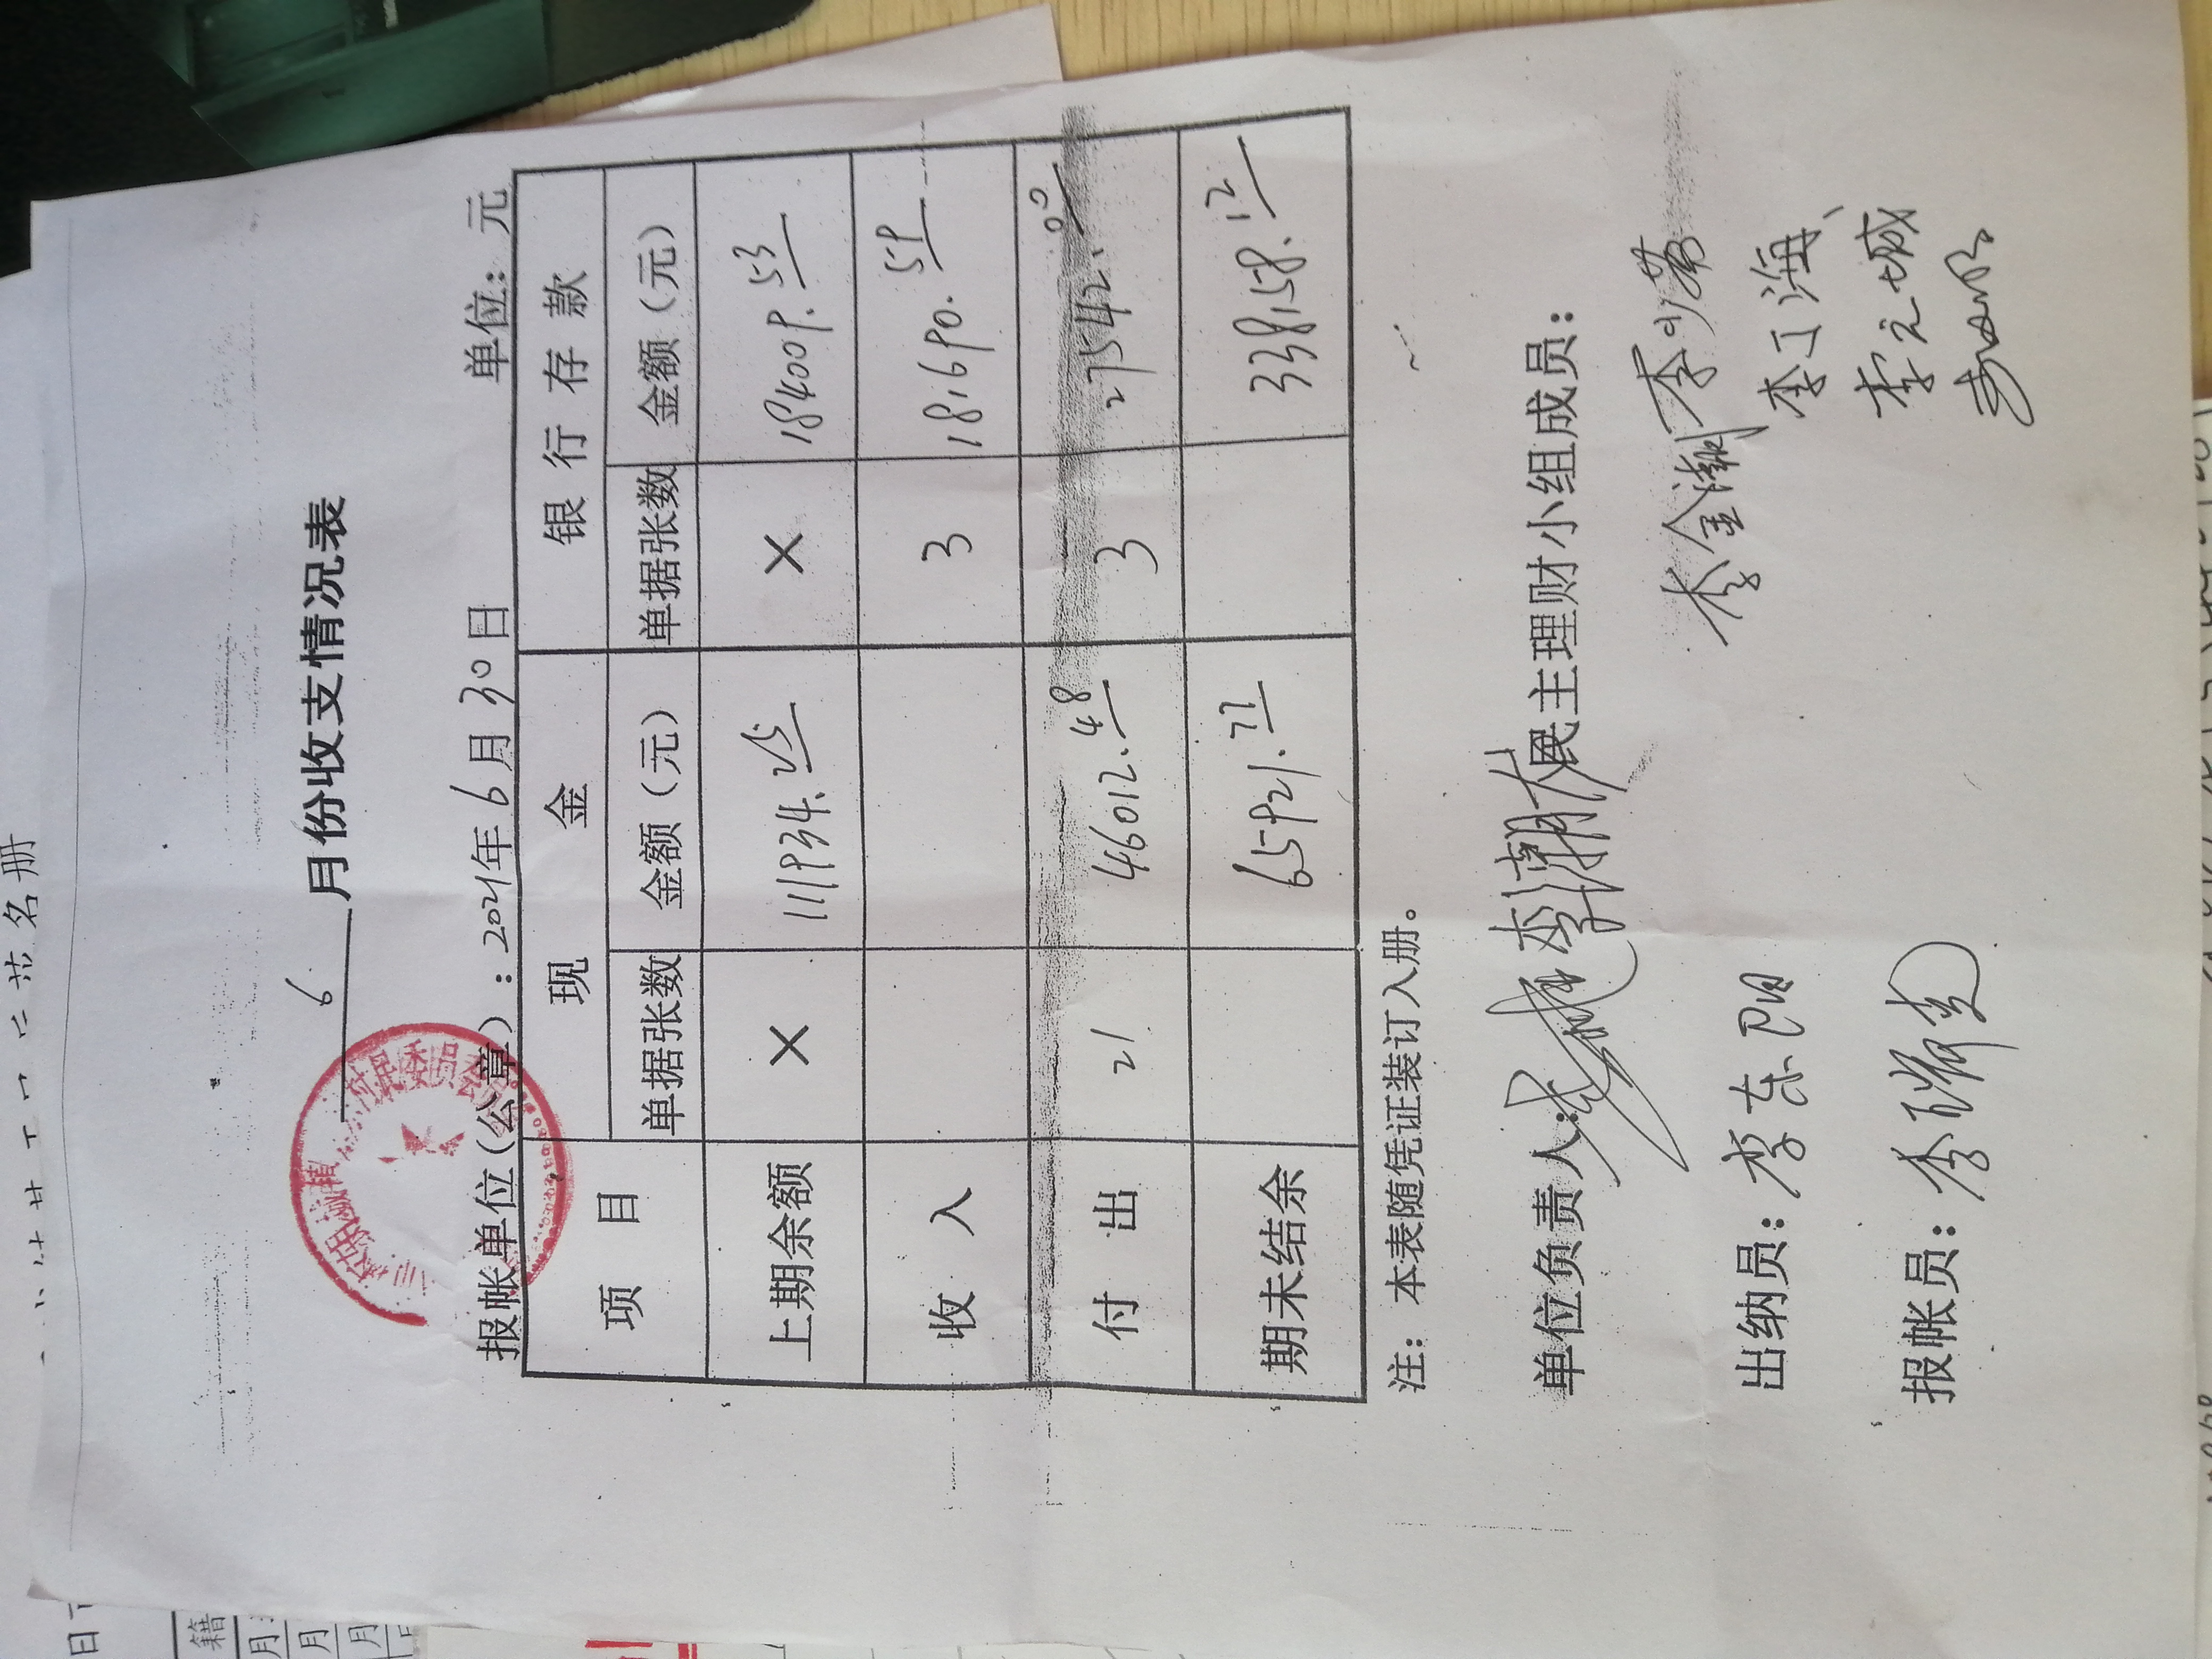 6 月份收支情况表
村民委员会
报帐单位(公章):2021年6月30日 单位:元
项 目 现 金 银 行 存 款
单据张数 金额(元) 单据张数 金额(元)
上期余额 × 111934.25 × 184009.53
收 入 3 181690.59
付 出 21 46012.48 3 27542.00
期未结余 65921.77 338158.12
注:本表随凭证装订入册。
单位负责人: 民主理财小组成员:
李金潮
出纳员:李东阳 李丁海
李元城
报帐员:李
名册
籍
月
月
月